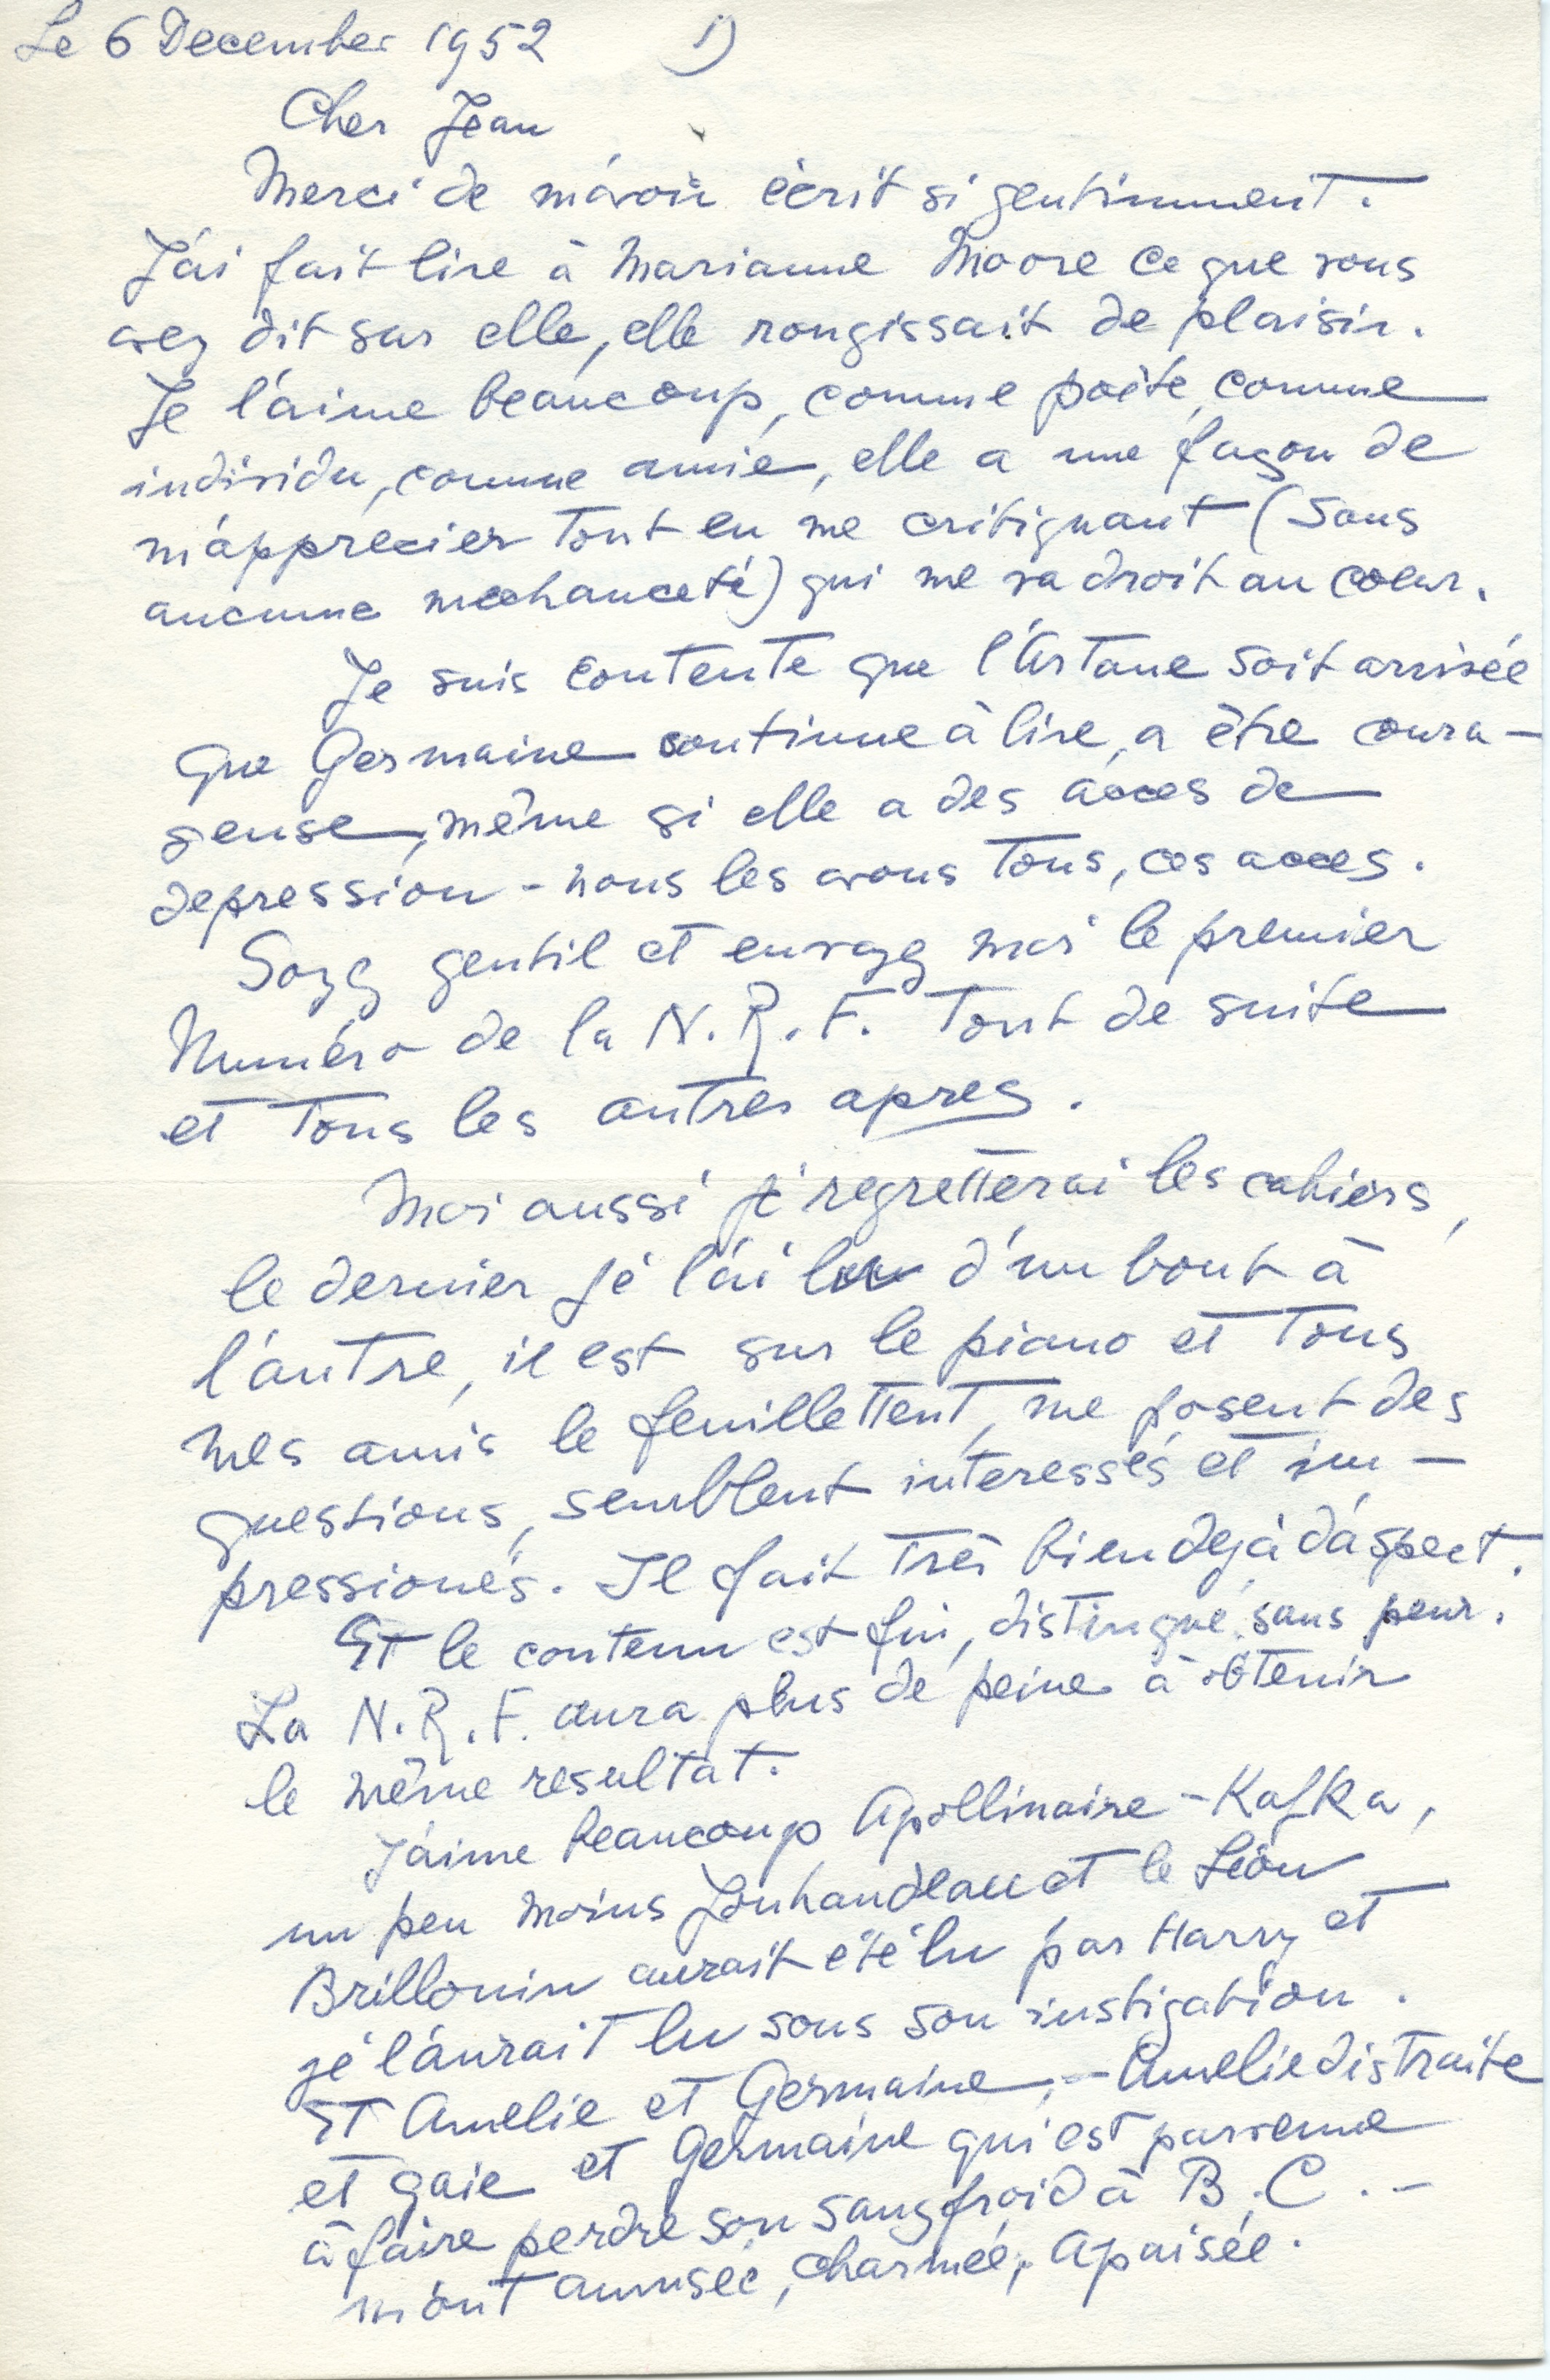 Le 6 December 1952 1)
Cher Jean
Merci de m'avoir écrit si gentimment.
J'ai fait lire à Marianne Moore ce que vous
avez dit sur elle, elle rougissait de plaisir.
Je l'aime beaucoup, comme poète, comme
individu, comme amie, elle a une façon de
m'apprecier tout en me critiquant (sans
aucune mechanceté) qui me va droit au coeur.
Je suis contente que l'Artane soit arrivée
que Germaine continue à lire, a être coura-
geuse, même si elle a des acces de
depression - nous les avons tous, ces acces.
Soyez gentil et envoyez moi le premier
Numéro de la N.R.F. tout de suite
et tous les autres apres.
Moi aussi je regretterai les cahiers,
le dernier je l'ai lu d'un bout à
l'autre, il est sur le piano et tous
mes amis le feuillettent, me posent des
questions, semblent interessés et im-
pressionés. Il fait très bien dejà d'aspect.
Et le contenu est fin, distingué, sans peur.
La N.R.F. aura plus de peine à obtenir
le même resultat.
J'aime beaucoup Apollinaire - Kafka,
un peu moins Jouhandeau et le Léon
Brillouin aurait été lu par Harry et
je l'aurait lu sous son instigation.
Et Amelie et Germaine, - Amelie distraite
et gaie et Germaine qui est parvenue
à faire perdre son sang froid à B.C. -
m'ont amusée, charmée, apaisée.